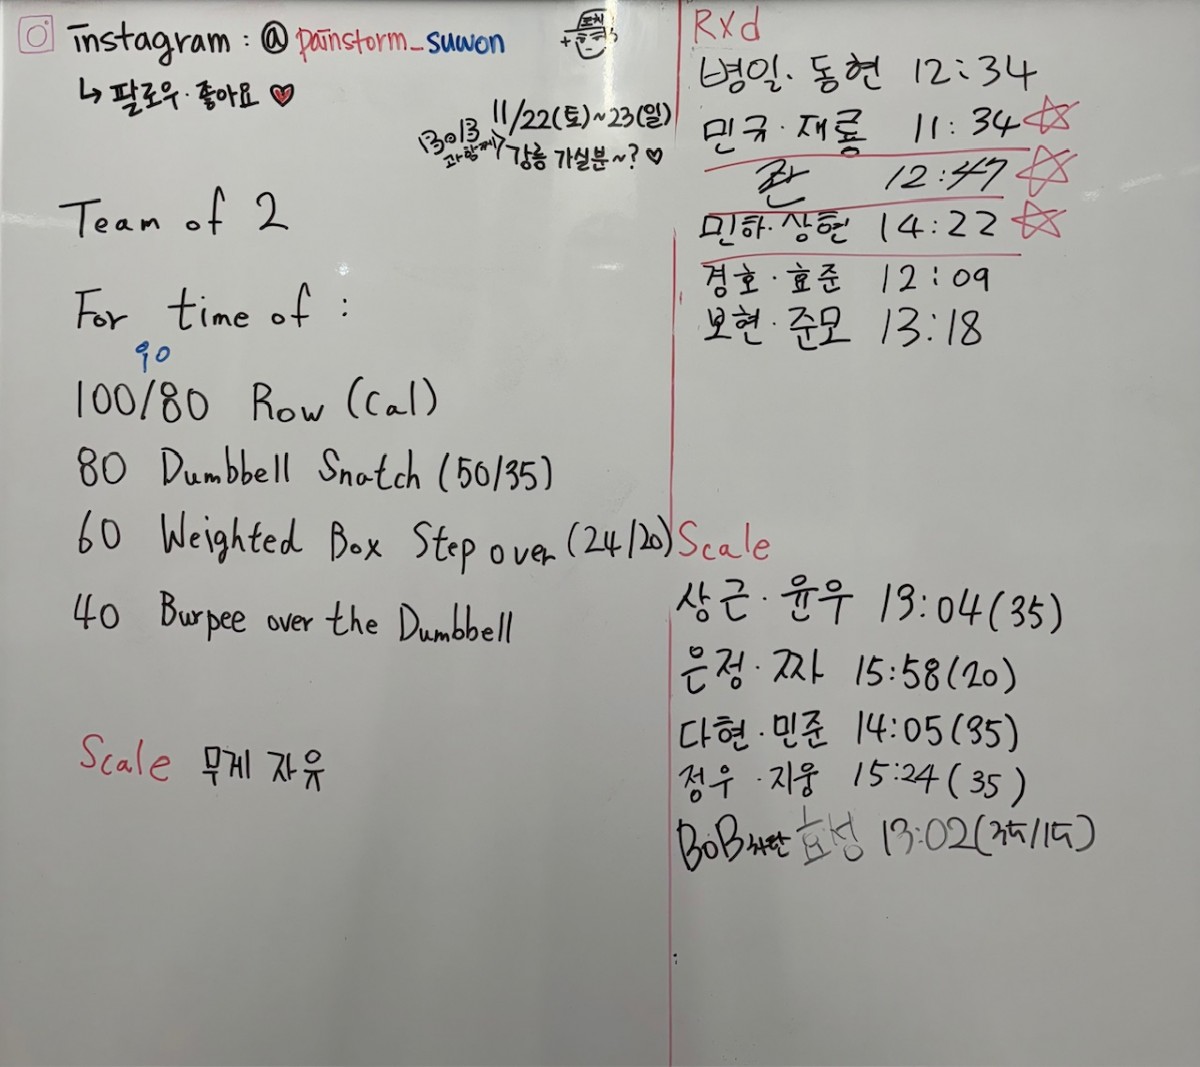 instagram : @ painstorm_suwon
↳ 팔로우·좋아요 ♥
코치
11/22(토)~23(일)
강릉 가실분~? ♡
Team of 2
For time of :
90
100/80 Row (Cal)
80 Dumbbell Snatch (50/35)
60 Weighted Box Step over (24/20)
40 Burpee over the Dumbbell
Scale 무게 자유
Rxd
병일·동현 12:34
민규·재룡 11:34 ☆
12:47 ☆
민하·상현 14:22 ☆
경호·효준 12:09
보현·준모 13:18
Scale
상근·윤우 13:04(35)
은정·짜 15:58(20)
다현·민준 14:05(35)
정우·지웅 15:24(35)
BoB 효성 13:02(35/15)